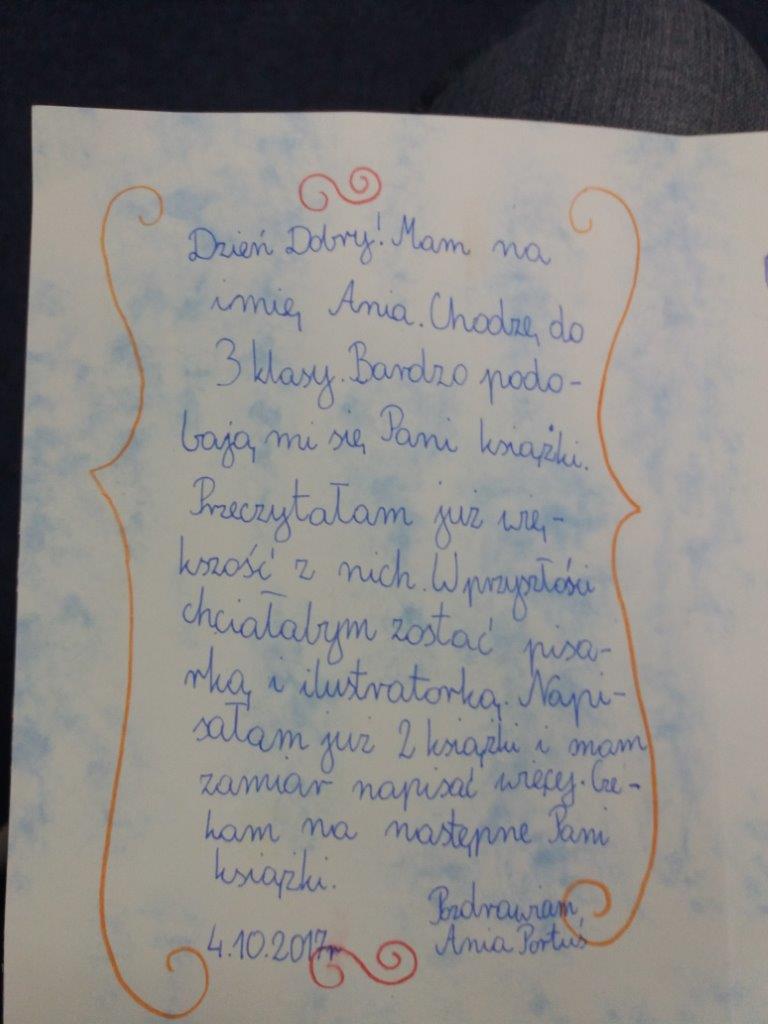 Dzień Dobry! Mam na
imię Ania. Chodzę do
3 klasy. Bardzo podo-
bają mi się Pani książki.
Przeczytałam już wię-
kszość z nich. W przyszłości
chciałabym zostać pisa-
rką i ilustratorką. Napi-
sałam już 2 książki i mam
zamiar napisać więcej. Cze-
kam na następne Pani
książki.
Pozdrawiam
4.10.2017r Ania Portuś